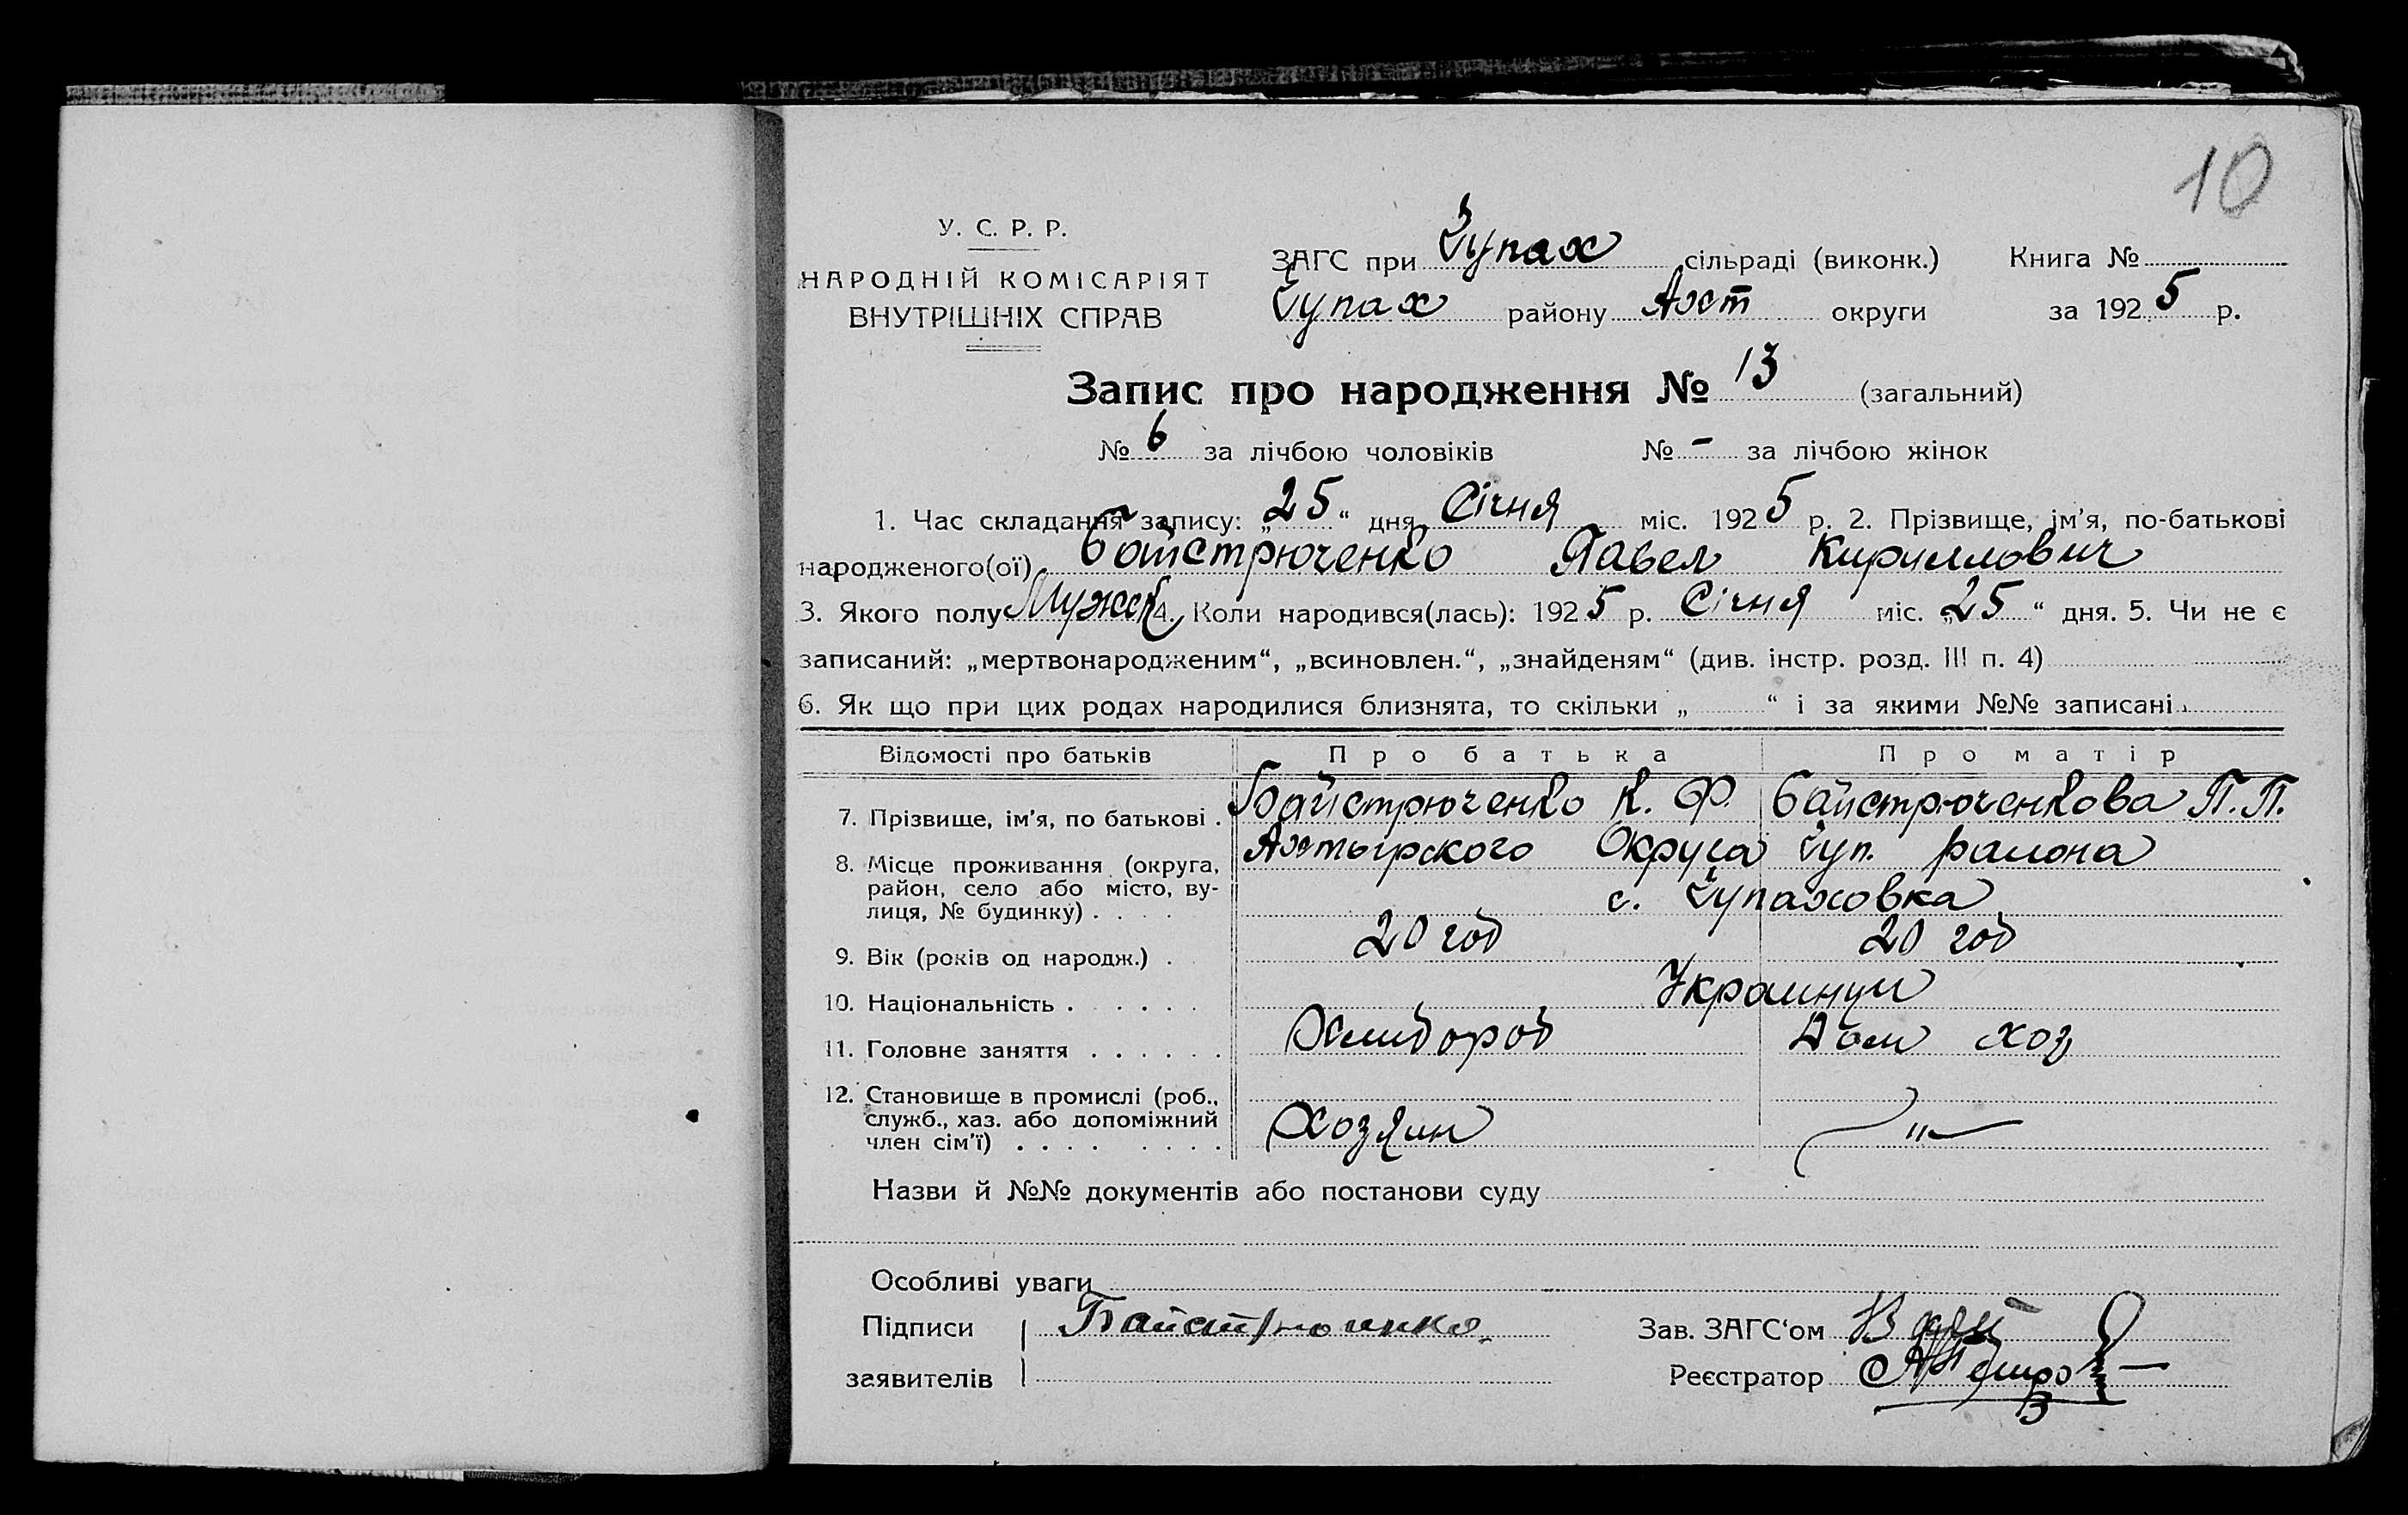 10
У. С. Р. Р.
НАРОДНІЙ КОМІСАРІЯТ
ВНУТРІШНІХ СПРАВ
ЗАГС при Чупах сільраді (виконк.) Книга №
Чупах району Ахт округи за 1925 р.
Запис про народження № 13 (загальний)
№ 6 за лічбою чоловіків № – за лічбою жінок
1. Час складання запису: „25“ дня Січня міс. 1925 р. 2. Прізвище, ім’я, по-батькові
народженого(ої) Байстрюченко Павел Кириллович
3. Якого полу Мужск 4. Коли народився(лась): 1925 р. Січня міс. „25“ дня. 5. Чи не є
записаний: „мертвонародженим“, „всиновлен.“, „знайденям“ (див. інстр. розд. III п. 4)
6. Як що при цих родах народилися близнята, то скільки „ “ і за якими №№ записані
Відомості про батьків Про батька Про матір
7. Прізвище, ім’я, по батькові . Байстрюченко К. Ф. Байстрюченкова П. П.
8. Місце проживання (округа, Ахтырского Округа Чуп. раиона
район, село або місто, ву-
лиця, № будинку) . . . . с. Чупаховка
9. Вік (років од народж.) . 20 год 20 год
10. Національність . . . . . . Украинци
11. Головне заняття . . . . . . Хлибороб Дом хоз
12. Становище в промислі (роб.,
служб., хаз. або допоміжний
член сім’ї) . . . . . . . . Хозяин —"—
Назви й №№ документів або постанови суду
Особливі уваги
Підписи Байстрюченко Зав. ЗАГС‘ом
заявителів Реєстратор